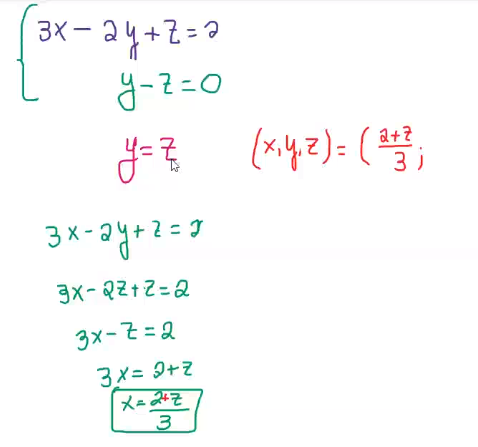 3x - 2y + z = 2
y - z = 0
y = z
(x, y, z) = ( \frac{2+z}{3} ;
3x - 2y + z = 2
3x - 2z + z = 2
3x - z = 2
3x = 2 + z
x = \frac{2+z}{3}